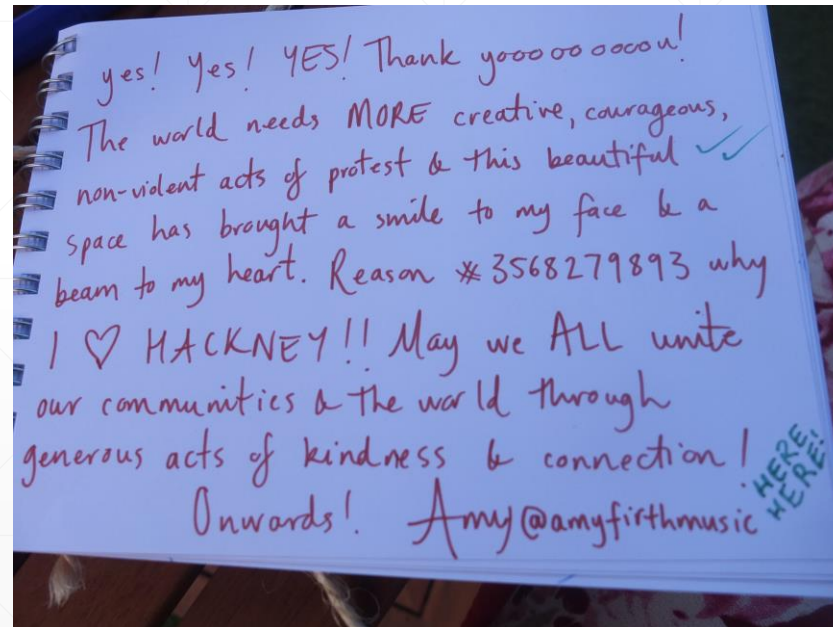 yes! Yes! YES! Thank yooooooooou!
The world needs MORE creative, courageous,
non-violent acts of protest & this beautiful
space has brought a smile to my face & a
beam to my heart. Reason #3568279893 why
I ♡ HACKNEY!! May we ALL unite
our communities & the world through
generous acts of kindness & connection!
Onwards! Amy@amyfirthmusic
HERE,
HERE!